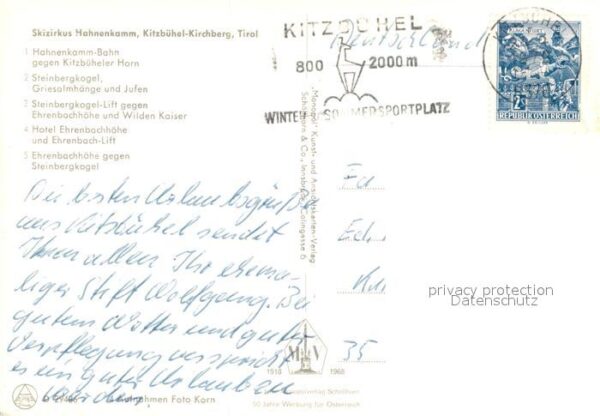 Skizirkus Hahnenkamm, Kitzbühel-Kirchberg, Tirol
1 Hahnenkamm-Bahn
gegen Kitzbüheler Horn
2 Steinbergkogel,
Griesalmhänge und Jufen
3 Steinbergkogel-Lift gegen
Ehrenbachhöhe und Wilden Kaiser
4 Hotel Ehrenbachhöhe
und Ehrenbach-Lift
5 Ehrenbachhöhe gegen
Steinbergkogel
Die besten Urlaubsgrüße
aus Kitzbühel sendet
Ihnen allen Ihr ehema-
liger Stift Wolfgang. Bei
gutem Wetter und guter
Verpflegung verspricht
es ein guter Urlaub
werden.
Aufnahmen Foto Korn
KITZBÜHEL
800 2000 m
WINTER- SOMMERSPORTPLATZ
Deutschland
2 S
REPUBLIK ÖSTERREICH
"Monopol" Kunst- und Ansichtskarten-Verlag
Schöllhorn & Co., Innsbruck, Colingasse 6
35
privacy protection
Datenschutz
M V
1918 1968
50 Jahre Werbung für Österreich